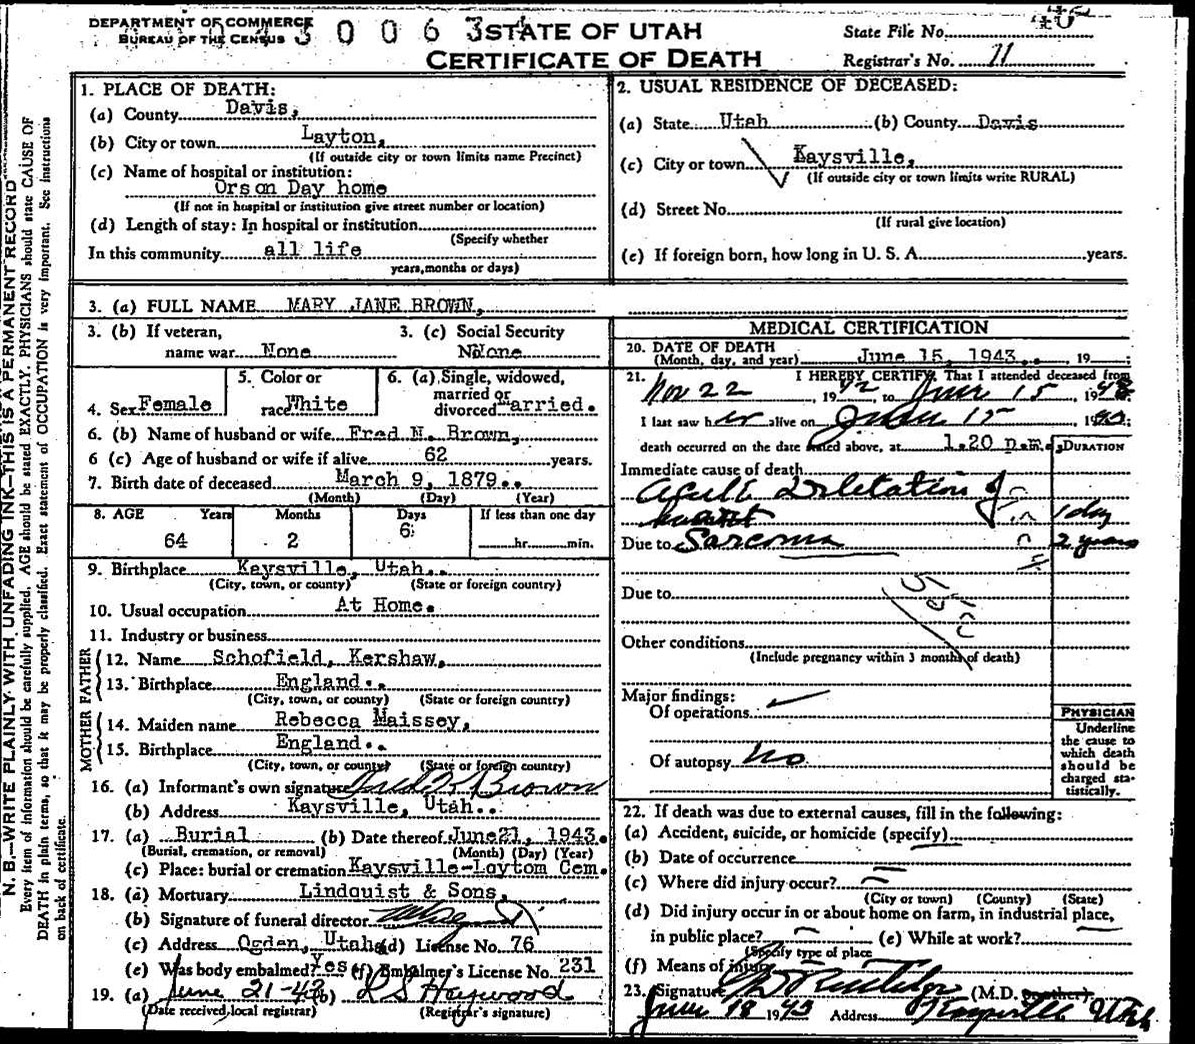 DEPARTMENT OF COMMERCE
BUREAU OF THE CENSUS
43 0 0 6 3
STATE OF UTAH
CERTIFICATE OF DEATH
State File No.
Registrar's No. 11
1. PLACE OF DEATH:
(a) County Davis,
(b) City or town Layton,
(If outside city or town limits name Precinct)
(c) Name of hospital or institution:
Orson Day home
(If not in hospital or institution give street number or location)
(d) Length of stay: In hospital or institution
(Specify whether
In this community all life
years, months or days)
2. USUAL RESIDENCE OF DECEASED:
(a) State Utah (b) County Davis
(c) City or town Kaysville,
(If outside city or town limits write RURAL)
(d) Street No.
(If rural give location)
(e) If foreign born, how long in U. S. A. years.
3. (a) FULL NAME MARY JANE BROWN,
3. (b) If veteran,
name war None
3. (c) Social Security
No None
4. Sex Female
5. Color or
race White
6. (a) Single, widowed,
married or
divorced Married.
6. (b) Name of husband or wife Fred N. Brown,
6 (c) Age of husband or wife if alive 62 years.
7. Birth date of deceased March 9, 1879..
(Month) (Day) (Year)
8. AGE Years Months Days If less than one day
64 2 6 hr. min.
9. Birthplace Kaysville, Utah..
(City, town, or county) (State or foreign country)
10. Usual occupation At Home.
11. Industry or business
FATHER
12. Name Schofield, Kershaw,
13. Birthplace England..
(City, town, or county) (State or foreign country)
MOTHER
14. Maiden name Rebecca Maissey,
15. Birthplace England..
(City, town, or county) (State or foreign country)
16. (a) Informant's own signature Brown
(b) Address Kaysville, Utah..
17. (a) Burial (b) Date thereof June 21, 1943.
(Burial, cremation, or removal) (Month) (Day) (Year)
(c) Place: burial or cremation Kaysville-Laytom Cem.
18. (a) Mortuary Lindquist & Sons,
(b) Signature of funeral director
(c) Address Ogden, Utah (d) License No. 76
(e) Was body embalmed? Yes (f) Embalmer's License No. 231
19. (a) June 21-43 (b) L S Haywood
(Date received local registrar) (Registrar's signature)
MEDICAL CERTIFICATION
20. DATE OF DEATH
(Month, day, and year) June 15, 1943. , 19 ;
21. I HEREBY CERTIFY, That I attended deceased from
Nov 22, 1942, to June 15, 1943
I last saw her alive on June 15, 1943;
death occurred on the date stated above, at 1.20 p.m. DURATION
Immediate cause of death
Acute Diletation of
heart 1 day
Due to Sarcoma 2 years
Due to
Other conditions
(Include pregnancy within 3 months of death)
Major findings:
Of operations
Of autopsy no
PHYSICIAN
Underline
the cause to
which death
should be
charged sta-
tistically.
22. If death was due to external causes, fill in the following:
(a) Accident, suicide, or homicide (specify)
(b) Date of occurrence
(c) Where did injury occur?
(City or town) (County) (State)
(d) Did injury occur in or about home on farm, in industrial place,
in public place? (e) While at work?
(Specify type of place
(f) Means of injury
23. Signature (M.D. or other)
June 18 1943 Address Kaysville Utah
N. B.—WRITE PLAINLY WITH UNFADING INK—THIS IS A PERMANENT RECORD
Every item of information should be carefully supplied. AGE should be stated EXACTLY. PHYSICIANS should state CAUSE OF
DEATH in plain terms, so that it may be properly classified. Exact statement of OCCUPATION is very important. See instructions
on back of certificate.